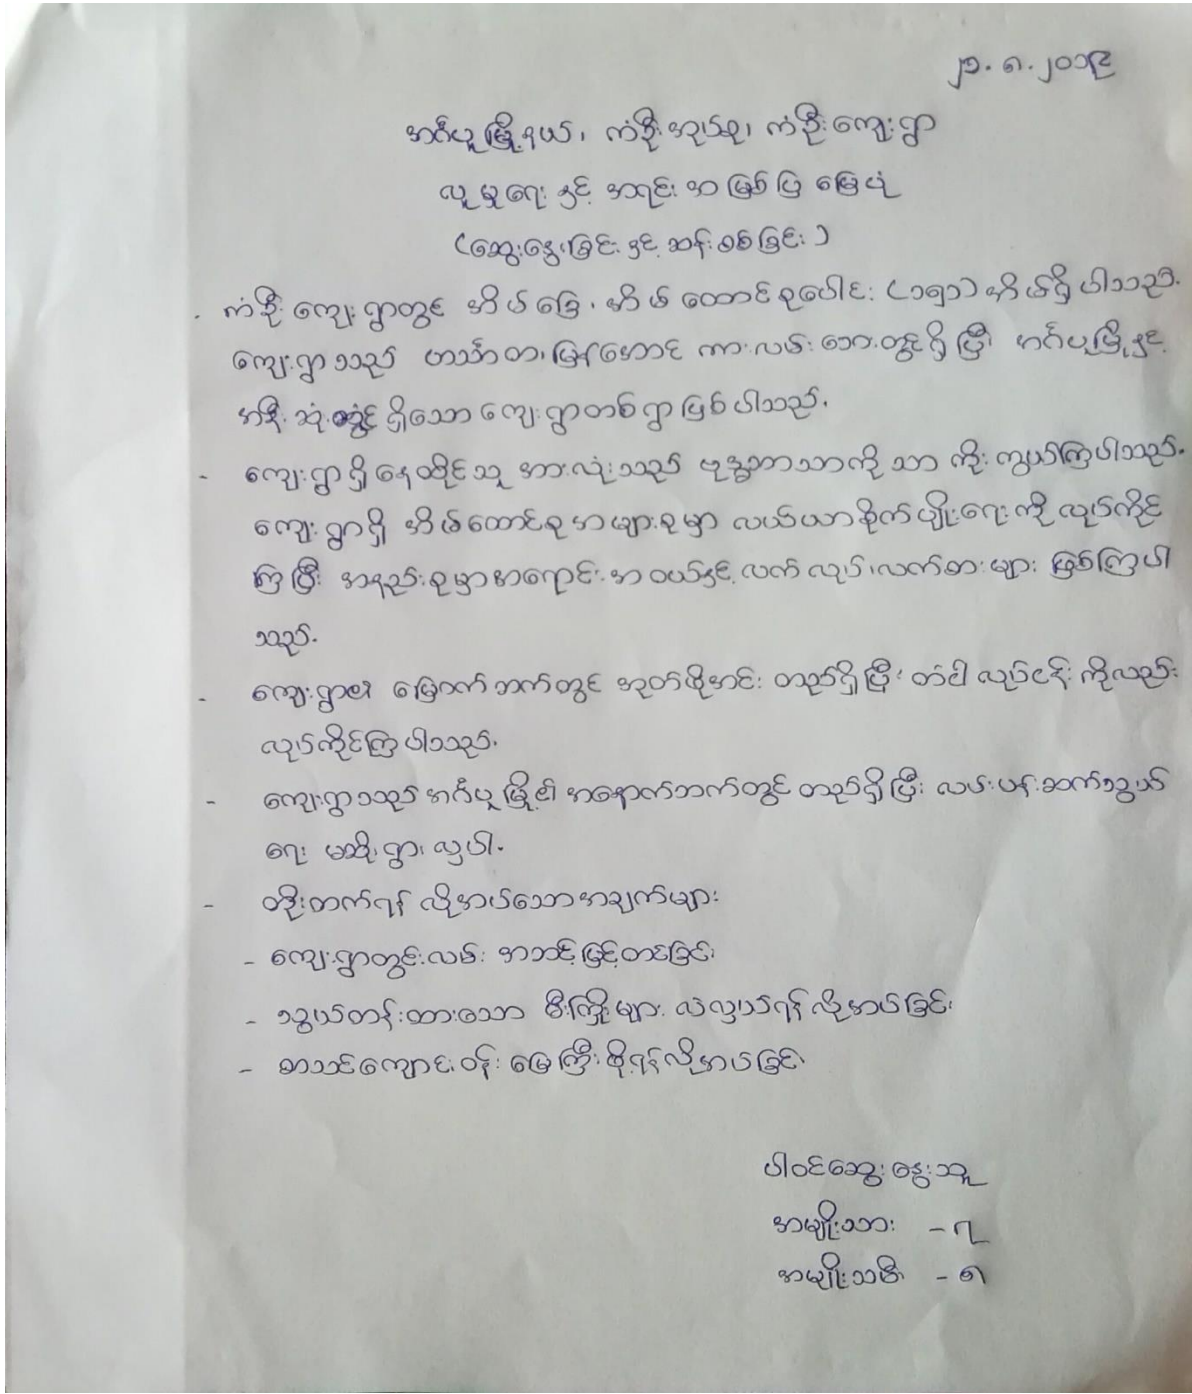 ၂၁.၈.၂၀၁၉
အင်္ဂပူမြို့နယ်၊ ကံဦးအုပ်စု၊ ကံဦးကျေးရွာ
လူမှုရေး နှင့် အရင်းအမြစ်ပြ မြေပုံ
(ဆွေးနွေးခြင်း နှင့် ဆန်းစစ်ခြင်း)
- ကံဦး ကျေးရွာတွင် အိမ်ခြေ၊ အိမ်ထောင်စုပေါင်း (၁၅၁) အိမ်ရှိပါသည်.
ကျေးရွာသည် ဟင်္သာတ၊ မြန်အောင် ကားလမ်းဘေးတွင်ရှိပြီး အင်္ဂပူမြို့နှင့်
အနီးဆုံးတွင်ရှိသော ကျေးရွာတစ်ရွာဖြစ်ပါသည်.
- ကျေးရွာရှိနေထိုင်သူအားလုံးသည် ဗုဒ္ဓဘာသာကိုသာ ကိုးကွယ်ကြပါသည်.
ကျေးရွာရှိ အိမ်ထောင်စုအများစုမှာ လယ်ယာစိုက်ပျိုးရေးကို လုပ်ကိုင်
ကြပြီး အနည်းစုမှာအရောင်းအဝယ်နှင့် လက်လုပ်၊လက်စားများ ဖြစ်ကြပါ
သည်.
- ကျေးရွာ၏ မြောက်ဘက်တွင် အုတ်ဖိုအင်း တည်ရှိပြီး တံငါလုပ်ငန်းကိုလည်း
လုပ်ကိုင်ကြပါသည်.
- ကျေးရွာသည် အင်္ဂပူမြို့၏ အနောက်ဘက်တွင် တည်ရှိပြီး လမ်းပန်းဆက်သွယ်
ရေး မဆိုးရွားလှပါ.
- တိုးတက်ရန် လိုအပ်သောအချက်များ
- ကျေးရွာတွင်းလမ်း အဆင့်မြှင့်တင်ခြင်း
- သွယ်တန်းထားသော မီးကြိုးများ လဲလှယ်ရန်လိုအပ်ခြင်း
- စာသင်ကျောင်းဝန်း မြေကြီးဖို့ရန်လိုအပ်ခြင်း
ပါဝင်ဆွေးနွေးသူ
အမျိုးသား - ၇
အမျိုးသမီး - ၈